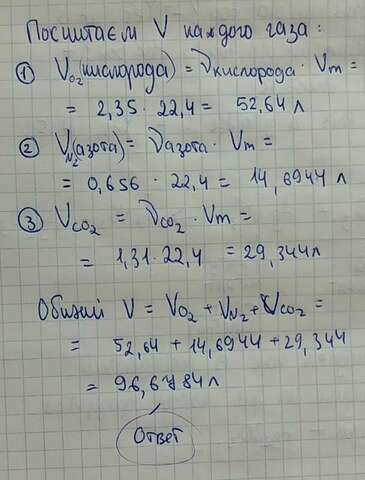 Посчитаем V каждого газа:
① V O₂ (кислорода) = ν кислорода · Vm =
= 2,35 · 22,4 = 52,64 л
② V N₂ (азота) = ν азота · Vm =
= 0,656 · 22,4 = 14,6944 л
③ V CO₂ = ν CO₂ · Vm =
= 1,31 · 22,4 = 29,344 л
Общий V = V O₂ + V N₂ + V CO₂ =
= 52,64 + 14,6944 + 29,344
= 96,6784 л
Ответ